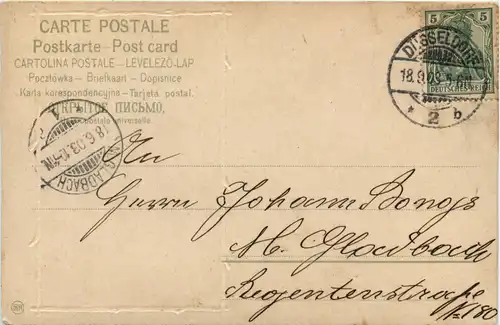 CARTE POSTALE
Postkarte - Post card
CARTOLINA POSTALE - LEVELEZÖ-LAP
Pocztówka - Briefkaart - Dopisnice
Karta korespondencyjna - Tarjeta postal.
ОТКРЫТОЕ ПИСЬМО,
postale universelle.
5 5
DEUTSCHES REICH
DÜSSELDORF
18.9.03.5-6N
* 2 b
M. GLADBACH
8.6.03.12-1N.
An
Herrn Johann Bongs
M. Gladbach
Regentenstraße
180